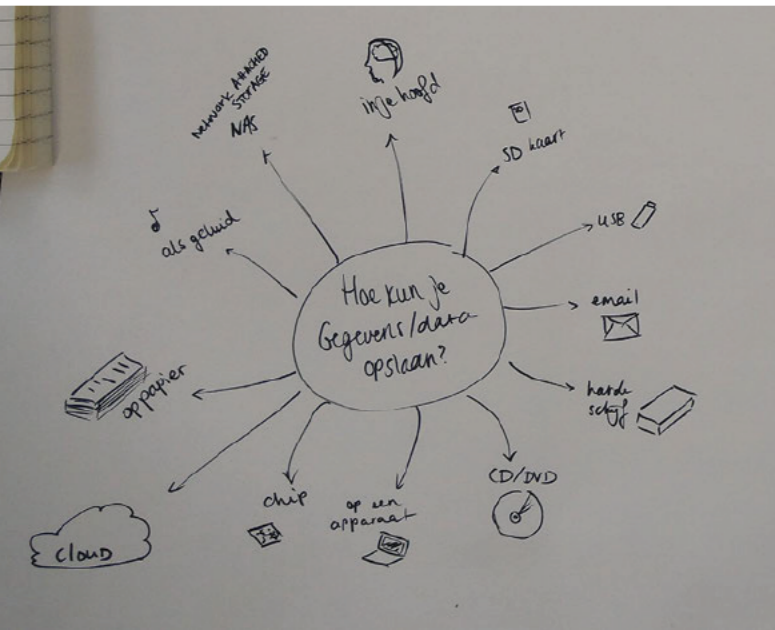 Hoe kun je
Gegevens/data
opslaan?
in je hoofd
SD kaart
USB
email
harde
schijf
CD/DVD
op een
apparaat
chip
CLOUD
op papier
als geluid
NETWORK ATTACHED
STORAGE
NAS